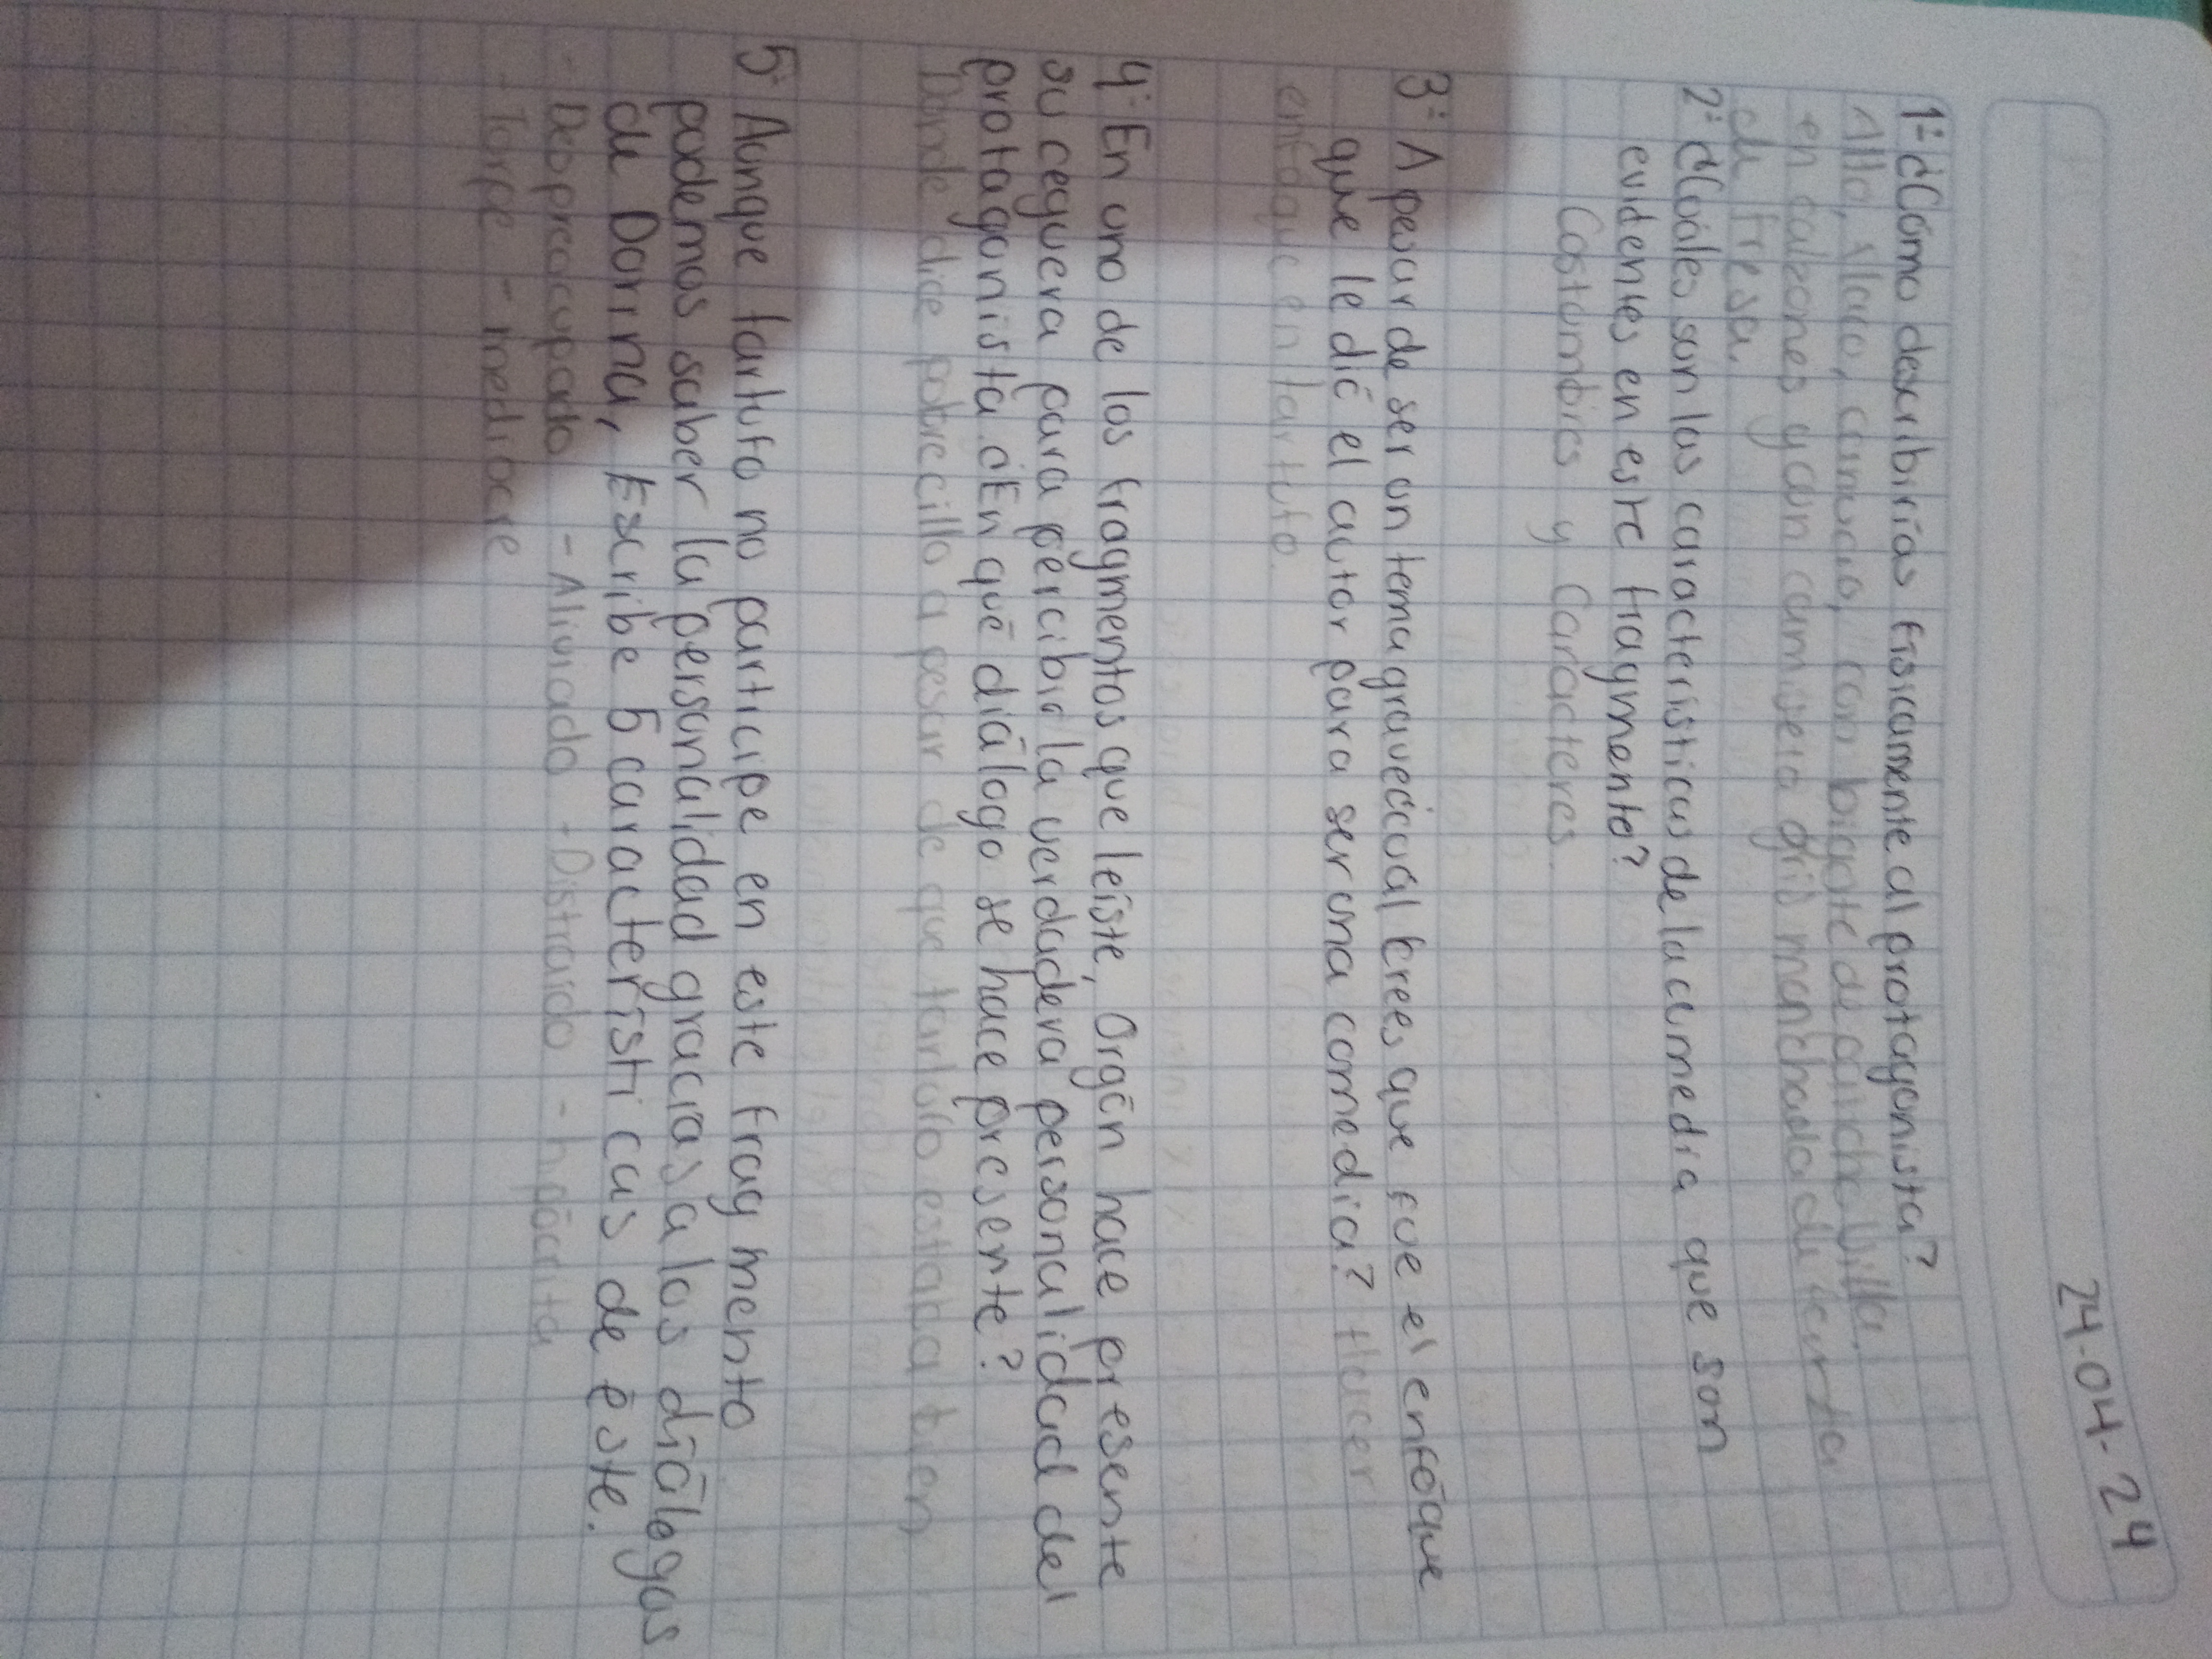 24-04-24
1- ¿Cómo describirías físicamente al protagonista?
Alto, flaco, canoso, con bigote de Pancho Villa,
en calzones y con camiseta gris manchada de
de fresa.
2- ¿Cuáles son las características de la comedia que son
evidentes en este fragmento?
Costumbres y Carácteres.
3- A pesar de ser un tema grave ¿cuál crees que fue el enfoque
que le dió el autor para ser una comedia? Hacer
enfoque en tartufo.
4- En uno de los fragmentos que leíste, Orgón hace presente
su ceguera para percibir la verdadera personalidad del
protagonista ¿En qué diálogo se hace presente?
Donde dice pobrecillo a pesar de que tartufo estaba bien
5- Aunque tartufo no participe en este fragmento
podemos saber la personalidad gracias a los diálogos
de Dorina, Escribe 5 características de éste.
- Despreocupado - Aliviado - Distraído - hipócrita
- Torpe - mediocre